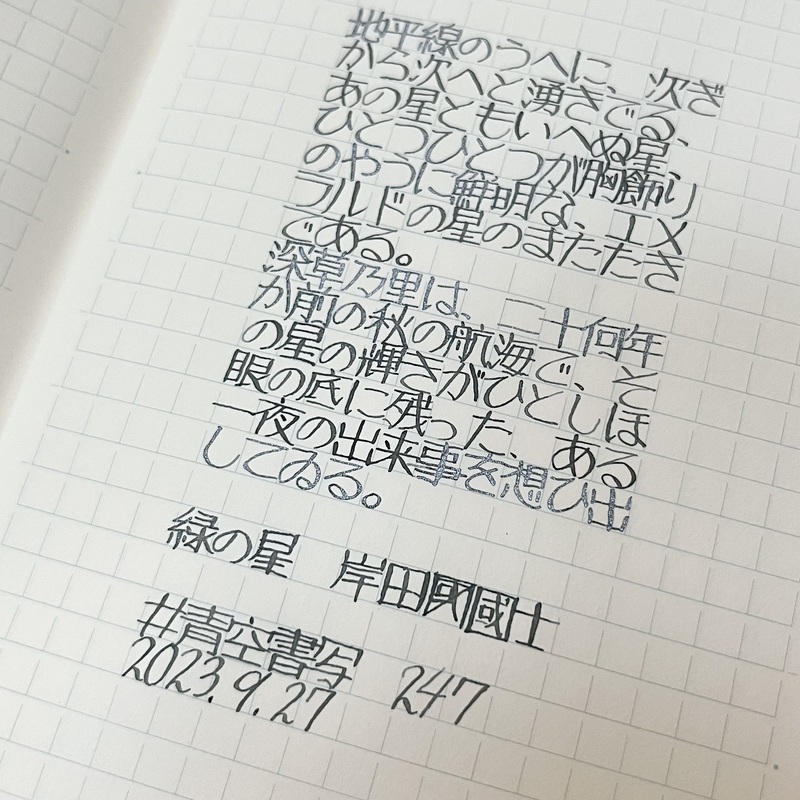 地平線のうへに、次ぎ
から次へと湧きでる、
あの星ともいへぬ星、
ひとつひとつが胸飾り
のやうに鮮明な、エメ
ラルドの星のまたたき
である。
深草乃里は、二十何年
か前の秋の航海で、そ
の星の輝きがひとしほ
眼の底に残った、ある
一夜の出来事を想ひ出
してゐる。
緑の星 岸田國士
#青空書写
2023.9.27 247